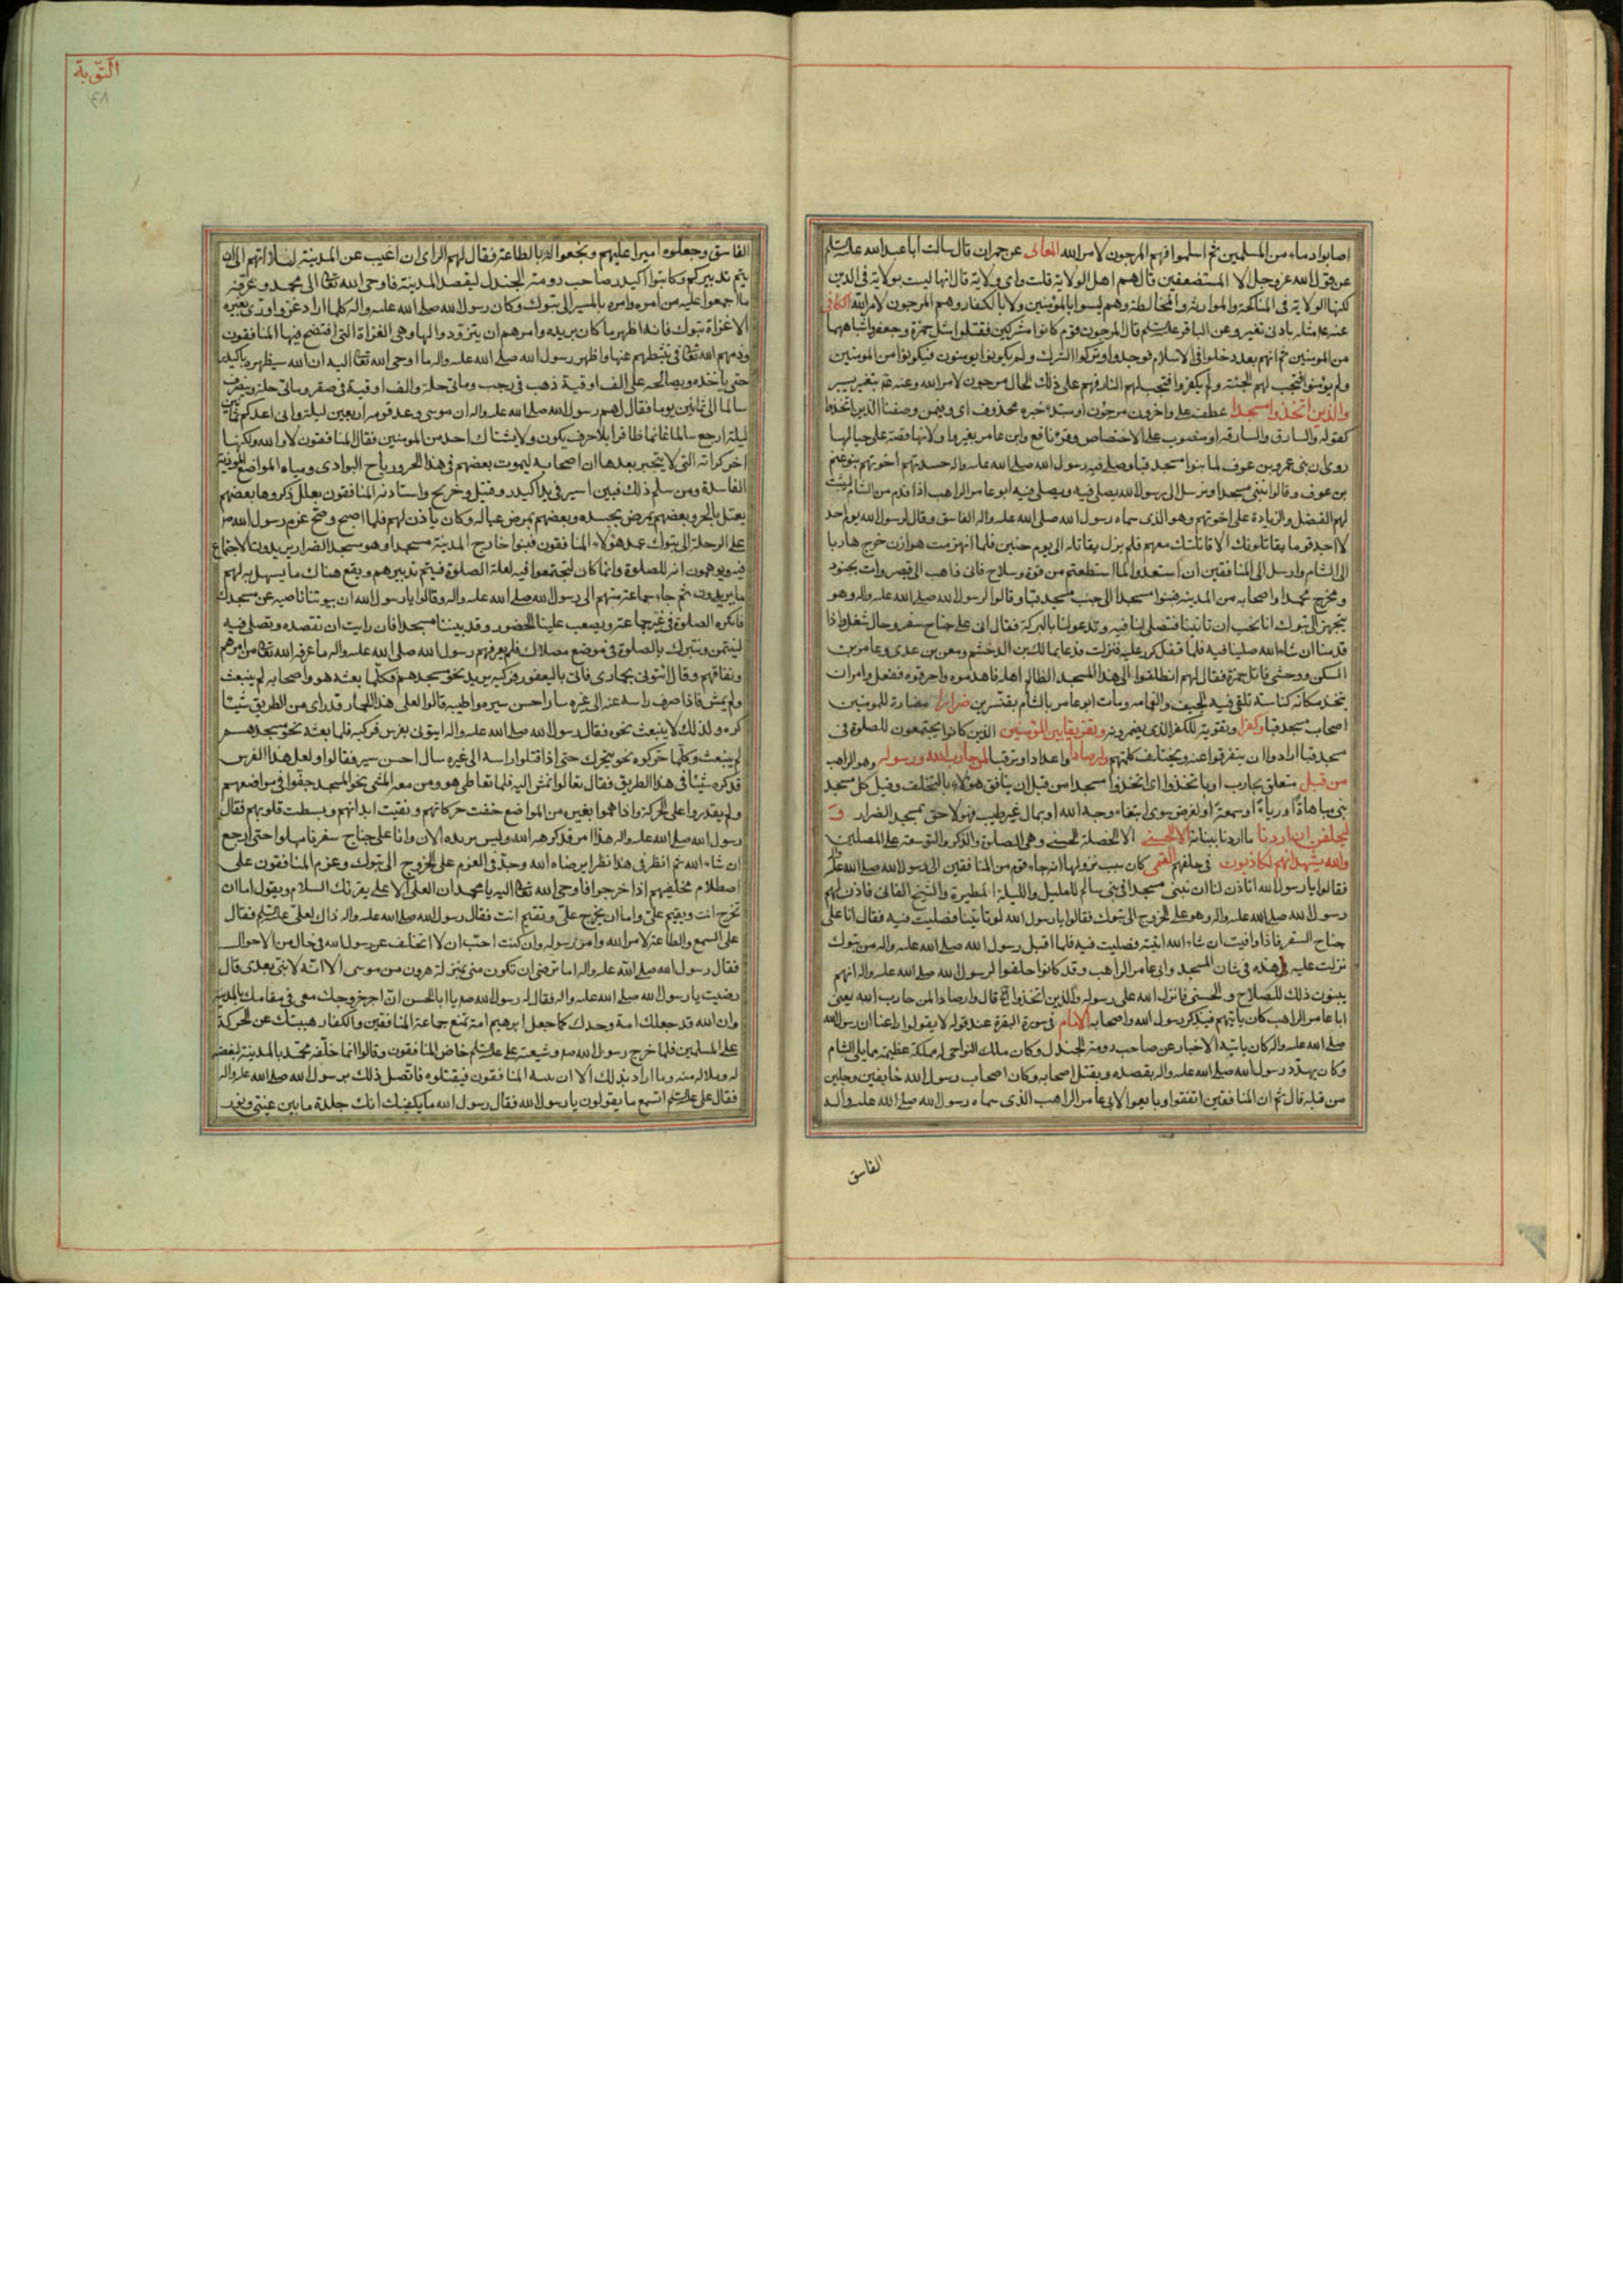 اصابوا دماء من المسلمين ثم اسلموا فهم المرجون لامر الله المعانى عن حمران قال سالت ابا عبد الله
عن قول الله عز وجل الا المستضعفين قال هم اهل الولاية قلت واى ولاية قال انها ليست بولاية فى الدين
لكنها الولاية فى المناكحة والموارثة والمخالطة وهم ليسوا بالمؤمنين ولا بالكفار وهم المرجون لامر الله الكافى
عنه مثله بادنى تغيير وعن الباقر قال المرجون قوم كانوا مشركين فقتلوا مثل حمزة وجعفر واشباههما
من المومنين ثم انهم بعد دخلوا فى الاسلام فوحدوا وتركوا الشرك ولم يكونوا يومنون فيكونوا من المومنين
ولم يؤمنوا فتجب لهم الجنة ولم يكفروا فتجب لهم النار فهم على ذلك الحال مرجون لامر الله وعنه بتغيير يسير
والذين اتخذوا مسجدا عطف على واخرون مرجون او مبتدء خبره محذوف اى وفيمن وصفنا الذين اتخذوا
كقوله والسارق والسارقة او منصوب على الاختصاص وقرئ نافع وابن عامر بغير واو لانها قصة على حيالها
روى ان بنى عمرو بن عوف لما بنوا مسجد قبا وصلى فيه رسول الله صلى الله عليه واله حسدتهم اخوتهم بنو غنم
بن عوف وقالوا نبنى مسجدا ونرسل الى رسول الله يصلى فيه ويصلى فيه ابو عامر الراهب اذا قدم من الشام ليثبت
لهم الفضل والزيادة على اخوتهم وهو الذى سماه رسول الله صلى الله عليه واله الفاسق وقال لرسول الله يوم احد
لا اجد قوما يقاتلونك الا قاتلتك معهم فلم يزل يقاتله الى يوم حنين فلما انهزمت هوازن خرج هاربا
الى الشام وارسل الى المنافقين ان استعدوا لما استطعتم من قوة وسلاح فانى ذاهب الى قيصر وات بجنود
ومخرج محمدا واصحابه من المدينة فبنوا مسجدا الى جنب مسجد قبا وقالوا لرسول الله صلى الله عليه واله وهو
يتجهز الى تبوك انا نحب ان تاتينا فتصلى لنا فيه وتدعو لنا بالبركة فقال انى على جناح سفر وحال شغل واذا
قدمنا ان شاء الله صلينا فيه فلما قفل كرر عليه فنزلت فدعا بمالك بن الدخشم ومعن بن عدى وعامر بن
السكن ووحشى قاتل حمزة فقال لهم انطلقوا الى هذا المسجد الظالم اهله فاهدموه واحرقوه ففعل وامر ان
يتخذ مكانه كناسة تلقى فيه الجيف والقمامه ومات ابو عامر بالشام بقنسرين ضرارا مضارة للمومنين
اصحاب مسجد قبا وكفرا وتقوية للكفر الذى يضمرونه وتفريقا بين المؤمنين الذين كانوا يجتمعون للصلوة فى
مسجد قبا ارادوا ان يتفرقوا عنه ويختلف كلمتهم وارصادا واعدادا وترقبا لمن حارب الله ورسوله وهو الراهب
من قبل متعلق بحارب او باتخذوا اى اتخذوا مسجدا من قبل ان ينافق هؤلاء بالتخلف وقيل كل مسجد
بنى مباهاة او رياء او سمعة او لغرض سوى ابتغاء وجه الله او بمال غير طيب فهو لاحق بمسجد الضرار و
ليحلفن ان اردنا ما اردنا ببنائه الا الحسنى الا الخصلة الحسنى وهى الصلوة والذكر والتوسعة على المصلين
والله يشهد انهم لكاذبون فى حلفهم القمى كان سبب نزولها انه جاء قوم من المنافقين الى رسول الله صلى الله عليه
فقالوا يا رسول الله اتاذن لنا ان نبنى مسجدا فى بنى سالم للعليل والليلة المطيرة والشيخ الفانى فاذن لهم
رسول الله صلى الله عليه واله وهو على الخروج الى تبوك فقالوا يا رسول الله لو تاتينا فصليت فيه فقال انا على
جناح السفر فاذا وافيت ان شاء الله اتيته فصليت فيه فلما اقبل رسول الله صلى الله عليه واله من تبوك
نزلت عليه هذه فى شان المسجد وابى عامر الراهب وقد كانوا حلفوا لرسول الله صلى الله عليه واله انهم
يبنون ذلك للصلاح والحسنى فانزل الله على رسوله والذين اتخذوا قال وارصادا لمن حارب الله يعنى
ابا عامر الراهب كان ياتيهم فيذكر رسول الله واصحابه الامام فى سورة البقرة عند قوله لا تقولوا راعنا ان رسول الله
صلى الله عليه واله كان ياتيه الاخبار عن صاحب دومة الجندل وكان ملك النواحى له مملكة عظيمة مما يلى الشام
وكان يهدد رسول الله صلى الله عليه واله بقصده ويقتل اصحابه وكان اصحاب رسول الله خايفين وجلين
من قبله قال ثم ان المنافقين اتفقوا وبايعوا لابى عامر الراهب الذى سماه رسول الله صلى الله عليه واله
الفاسق
التوبة
٤٨
الفاسق وجعلوه اميرا عليهم وبخعوا له بالطاعة فقال لهم الراى ان اغيب عن المدينة لئلا اتهم الى ان
يتم تدبيركم وكاتبوا اكيدر صاحب دومة الجندل ليقصد المدينة فاوحى الله تعالى الى محمد وعرفه
ما اجمعوا عليه من امره وامره بالمسير الى تبوك وكان رسول الله صلى الله عليه واله كلما اراد غزوا ورى بغيره
الا غزاة تبوك فانه اظهر ما كان يريده وامرهم ان يتزودوا لها وهى الغزاة التى افتضح فيها المنافقون
وذمهم الله تعالى فى تثبطهم عنها واظهر رسول الله صلى الله عليه واله ما اوحى الله تعالى اليه ان الله سيظهره باكيدر
حتى ياخذه ويصالحه على الف اوقية ذهب فى رجب ومائتى حلة والف اوقية فى صفر ومائتى حلة وينصرف
سالما الى ثمانين يوما فقال لهم رسول الله صلى الله عليه واله ان موسى وعد قومه اربعين ليلة وانى اعدكم ثمانين
ليلة ارجع سالما غانما ظافرا بلا حرب يكون ولا يشتاك احد من المومنين فقال المنافقون لا والله ولكنها
اخر كراته التى لا ينجبر بعدها ان اصحابه ليموت بعضهم فى هذا الحر ورياح البوادى ومياه المواضع الموذية
الفاسدة ومن سلم ذلك فبين اسير فى يد اكيدر وقتيل وجريح واستاذنه المنافقون بعلل ذكروها بعضهم
يعتل بالحر وبعضهم بمرض بجسده وبعضهم بمرض عياله وكان ياذن لهم فلما اصبح وصح عزم رسول الله
على الرحلة الى تبوك عمد هؤلاء المنافقون فبنوا خارج المدينة مسجدا وهو مسجد الضرار يريدون الاجتماع
فيه ويوهمون انه للصلوة وانما كان ليجتمعوا فيه لعلة الصلوة فيتم تدبيرهم ويقع هناك ما يسهل به لهم
ما يريدون ثم جاء جماعة منهم الى رسول الله صلى الله عليه واله وقالوا يا رسول الله ان بيوتنا قاصية عن مسجدك
فانا نكره الصلوة فى غير جماعة ويصعب علينا الحضور وقد بنينا مسجدا فان رايت ان تقصده وتصلى فيه
لنتيمن ونتبرك بالصلوة فى موضع مصلاك فلم يعرفهم رسول الله صلى الله عليه واله ما عرفه الله تعالى من امرهم
ونفاقهم وقال ائتونى بحمارى فاتى باليعفور فركبه يريد نحو مسجدهم فكلما بعثه هو واصحابه لم ينبعث
ولم يمش فاذا صرف راسه عنه الى غيره سار احسن سير واطيبه قالوا لعل هذا الحمار قد راى من الطريق شيئا
كرهه ولذلك لا ينبعث نحوه فقال رسول الله صلى الله عليه واله ايتونى بفرس فركبه فلما بعثه نحو مسجدهم
لم ينبعث وكلما حركوه نحوه لم يتحرك حتى اذا فتلوا راسه الى غيره سار احسن سير فقالوا ولعل هذا الفرس
قد كره شيئا فى هذا الطريق فقال تعالوا نمش اليه فلما تعاطى هو ومن معه المشى نحو المسجد جفوا فى مواضعهم
ولم يقدروا على الحركة واذا هموا بغيره من المواضع خفت حركاتهم ونقيت ابدانهم وبسطت قلوبهم فقال
رسول الله صلى الله عليه واله هذا امر قد كرهه الله وليس يريده الان وانا على جناح سفر فامهلوا حتى ارجع
ان شاء الله ثم انظر فى هذا نظرا يرضاه الله وجد فى العزم على الخروج الى تبوك وعزم المنافقون على
اصطلام مخلفيهم اذا خرجوا فاوحى الله تعالى اليه يا محمد ان العلى الاعلى يقرئك السلام ويقول اما ان
تخرج انت ويقيم على واما ان يخرج على وتقيم انت فقال رسول الله صلى الله عليه واله ذاك لعلى فقال
على السمع والطاعة لامر الله وامر رسوله وان كنت احب ان لا اتخلف عن رسول الله فى حال من الاحوال
فقال رسول الله صلى الله عليه واله اما ترضى ان تكون منى بمنزلة هرون من موسى الا انه لا نبى بعدى قال
رضيت يا رسول الله صلى الله عليه واله فقال له رسول الله يا ابا الحسن ان اجر خروجك معى فى مقامك بالمدينة
وان الله قد جعلك امة وحدك كما جعل ابرهيم امة تمنع جماعة المنافقين والكفار هيبتك عن الحركة
على المسلمين فلما خرج رسول الله وشيعه على خاض المنافقون وقالوا انما خلفه محمد بالمدينة لبغضه
له وملاله منه وما اراد بذلك الا ان يبيته المنافقون فيقتلوه فاتصل ذلك برسول الله صلى الله عليه واله
فقال على اتسمع ما يقولون يا رسول الله فقال رسول الله ما يكفيك انك جلدة ما بين عينى ونور